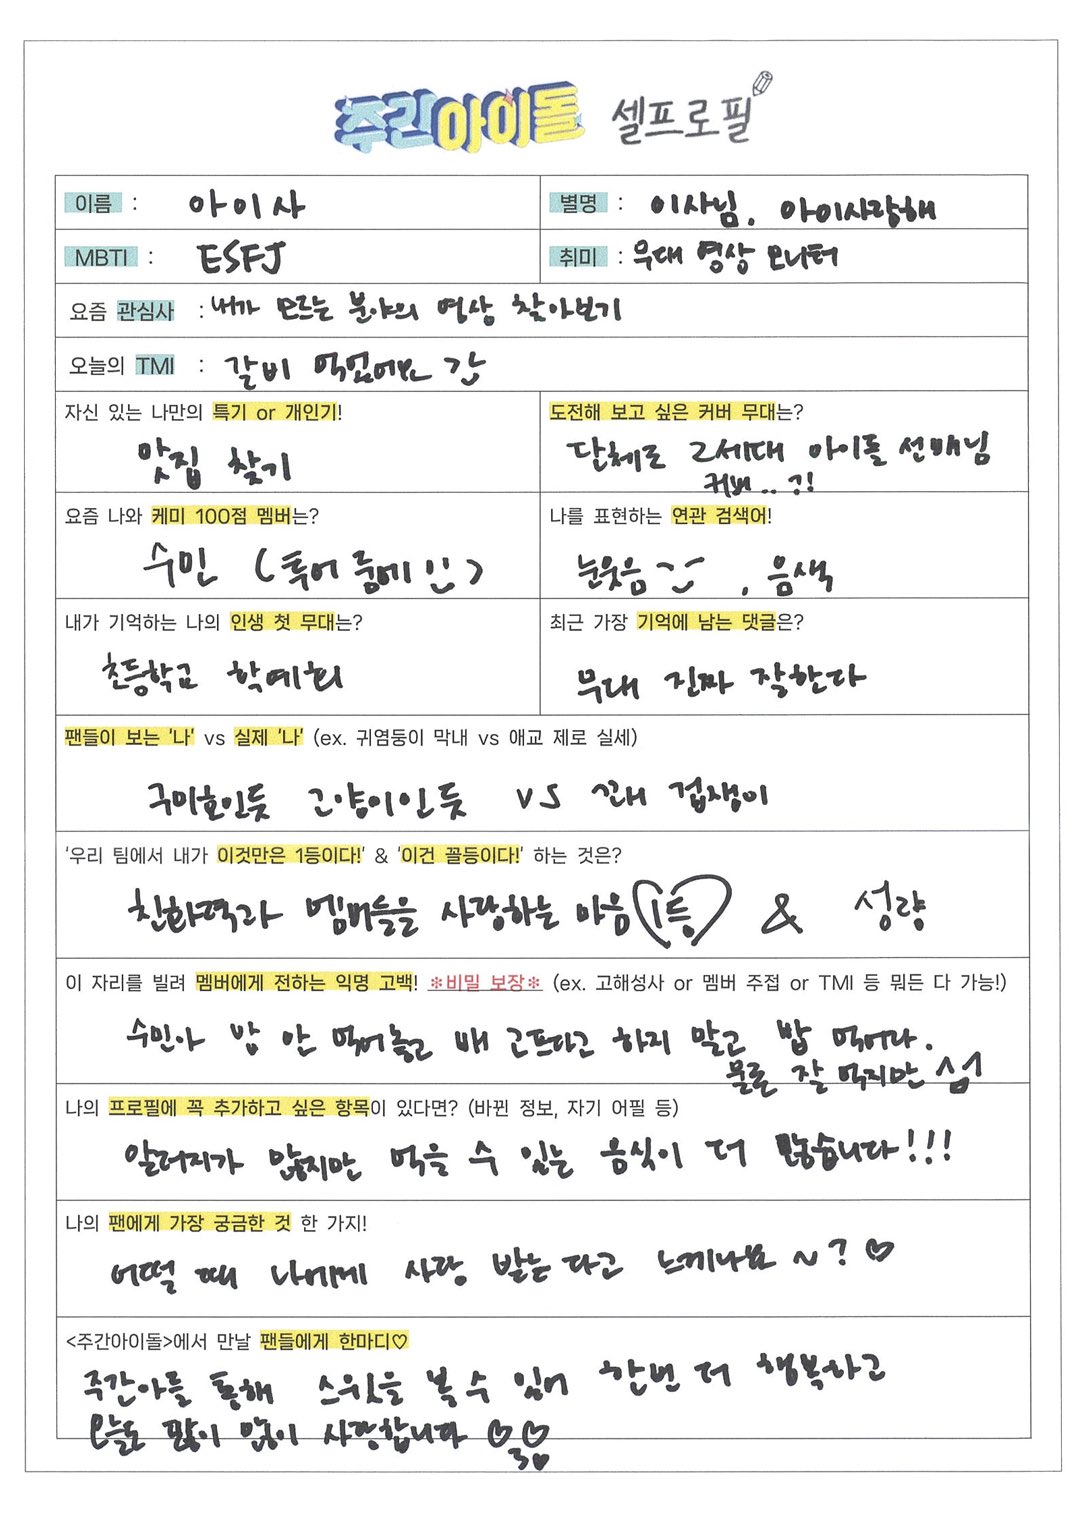 주간아이돌 셀프로필
이름 : 아이사
별명 : 이사님, 아이사랑해
MBTI : ESFJ
취미 : 무대 영상 모니터
요즘 관심사 : 내가 모르는 분야의 영상 찾아보기
오늘의 TMI : 갈비 먹었어요 갑
자신 있는 나만의 특기 or 개인기!
맛집 찾기
도전해 보고 싶은 커버 무대는?
단체로 2세대 아이돌 선배님
커버..?!
요즘 나와 케미 100점 멤버는?
수민 (투어 룸메!!)
나를 표현하는 연관 검색어!
눈웃음, 음색
내가 기억하는 나의 인생 첫 무대는?
초등학교 학예회
최근 가장 기억에 남는 댓글은?
무대 진짜 잘한다
팬들이 보는 '나' vs 실제 '나' (ex. 귀염둥이 막내 vs 애교 제로 실세)
구미호인듯 고양이인듯 vs 꽤 겁쟁이
'우리 팀에서 내가 이것만은 1등이다!' & '이건 꼴등이다!' 하는 것은?
친화력과 멤버들을 사랑하는 마음 (1등) & 성량
이 자리를 빌려 멤버에게 전하는 익명 고백! *비밀 보장* (ex. 고해성사 or 멤버 주접 or TMI 등 뭐든 다 가능!)
수민아 밥 안 먹어놓고 배 고프다고 하지 말고 밥 먹어라.
물론 잘 먹지만 섭
나의 프로필에 꼭 추가하고 싶은 항목이 있다면? (바뀐 정보, 자기 어필 등)
알러지가 많지만 먹을 수 있는 음식이 더 많습니다!!!
나의 팬에게 가장 궁금한 것 한 가지!
어떨 때 나에게 사랑 받는다고 느끼나요~? ♡
<주간아이돌>에서 만날 팬들에게 한마디♡
주간아를 통해 스윗을 볼 수 있어 한번 더 행복하고
오늘도 많이 많이 사랑합니다 ♡♡